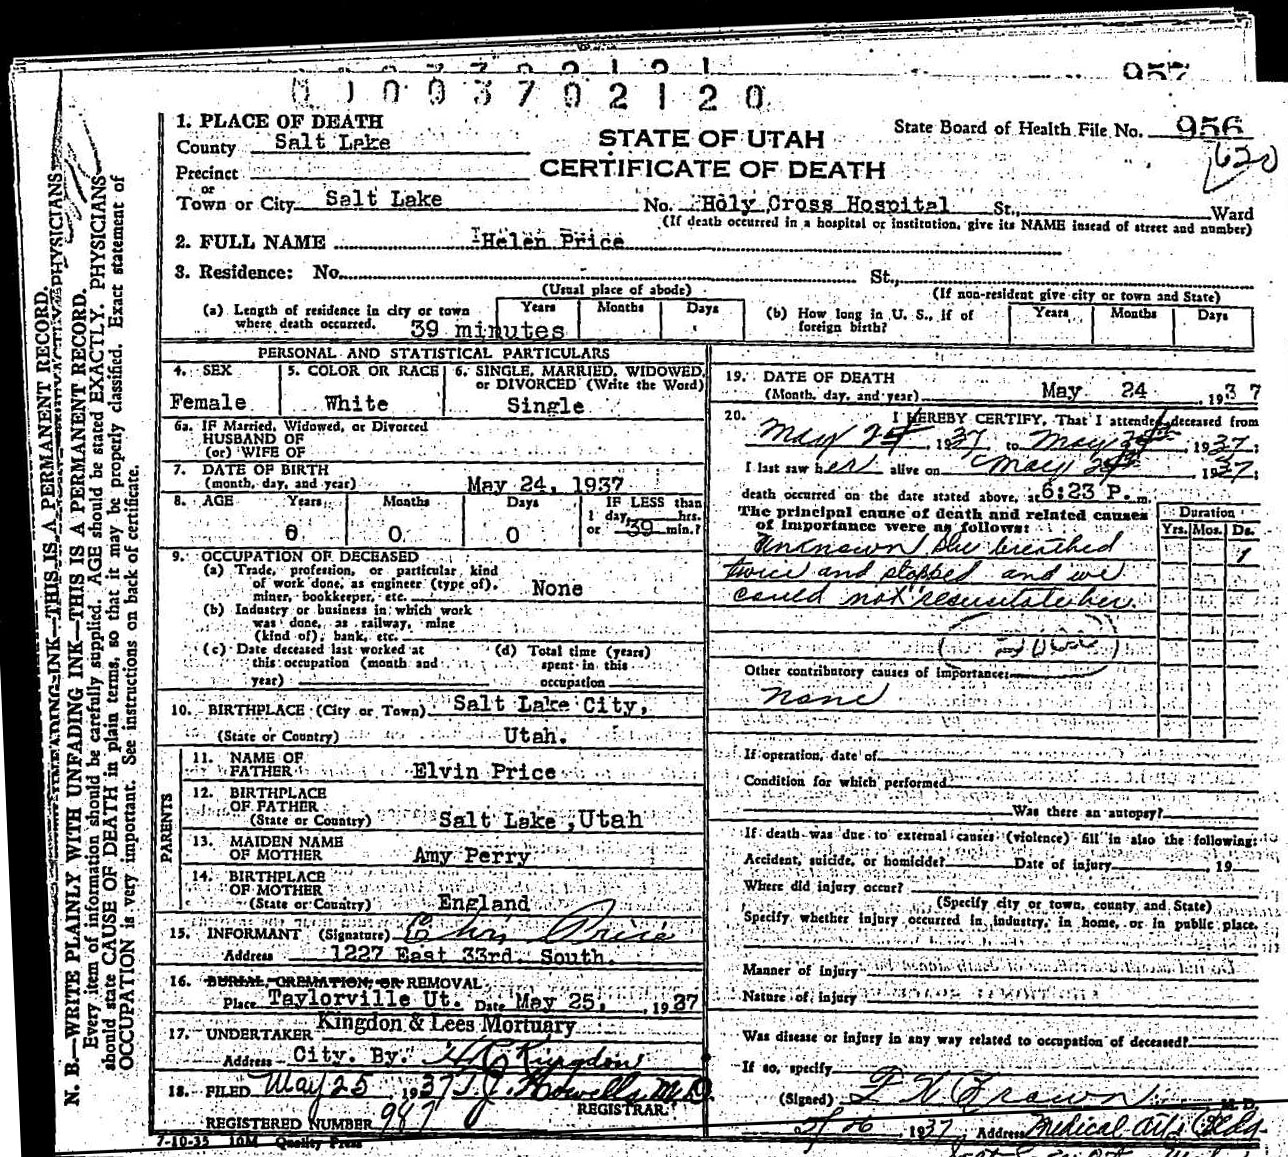 957
01003702120
State Board of Health File No. 956
620
STATE OF UTAH
CERTIFICATE OF DEATH
1. PLACE OF DEATH
County Salt Lake
Precinct
or
Town or City Salt Lake No. Holy Cross Hospital St., Ward
(If death occurred in a hospital or institution, give its NAME instead of street and number)
2. FULL NAME Helen Price
3. Residence: No. St.,
(Usual place of abode) (If non-resident give city or town and State)
(a) Length of residence in city or town where death occurred. 39 minutes Years Months Days
(b) How long in U. S., if of foreign birth? Years Months Days
PERSONAL AND STATISTICAL PARTICULARS
4. SEX 5. COLOR OR RACE 6. SINGLE, MARRIED, WIDOWED, or DIVORCED (Write the Word)
Female White Single
6a. IF Married, Widowed, or Divorced
HUSBAND OF
(or) WIFE OF
7. DATE OF BIRTH
(month, day, and year) May 24, 1937
8. AGE Years Months Days IF LESS than
1 day, hrs.
0 0 0 or 39 min.?
9. OCCUPATION OF DECEASED
(a) Trade, profession, or particular kind
of work done, as engineer (type of).
miner, bookkeeper, etc. None
(b) Industry or business in which work
was done, as railway, mine
(kind of), bank, etc.
(c) Date deceased last worked at
this occupation (month and
year)
(d) Total time (years)
spent in this
occupation
10. BIRTHPLACE (City or Town) Salt Lake City,
(State or Country) Utah.
PARENTS
11. NAME OF
FATHER Elvin Price
12. BIRTHPLACE
OF FATHER
(State or Country) Salt Lake, Utah
13. MAIDEN NAME
OF MOTHER Amy Perry
14. BIRTHPLACE
OF MOTHER
(State or Country) England
15. INFORMANT (Signature) Elvin Price
Address 1227 East 33rd. South.
16. BURIAL, CREMATION, OR REMOVAL
Place Taylorville Ut. Date May 25, 1937
17. UNDERTAKER Kingdon & Lees Mortuary
Address City. By. Kingdon
18. FILED May 25 1937 T.J. Howells, M.D.
REGISTRAR
REGISTERED NUMBER 987
7-10-35 10M Quality Press
19. DATE OF DEATH
(Month, day, and year) May 24, 1937
20. I HEREBY CERTIFY, That I attended deceased from
May 24 1937 to May 24, 1937;
I last saw her alive on May 24 1937;
death occurred on the date stated above, at 6:23 P. m.
The principal cause of death and related causes
of importance were as follows:
Duration
Yrs. Mos. Ds.
Unknown, she breathed 1
twice and stopped and we
could not resusitate her.
Other contributory causes of importance:
none
If operation, date of
Condition for which performed
Was there an autopsy?
If death was due to external causes (violence) fill in also the following:
Accident, suicide, or homicide? Date of injury 19
Where did injury occur?
(Specify city or town, county and State)
Specify whether injury occurred in industry, in home, or in public place.
Manner of injury
Nature of injury
Was disease or injury in any way related to occupation of deceased?
If so, specify
(Signed) M. D.
5/26, 1937 Address Medical Arts Bldg.
N. B.—WRITE PLAINLY WITH UNFADING INK—THIS IS A PERMANENT RECORD.
Every item of information should be carefully supplied. AGE should be stated EXACTLY. PHYSICIANS
should state CAUSE OF DEATH in plain terms, so that it may be properly classified. Exact statement of
OCCUPATION is very important. See instructions on back of certificate.